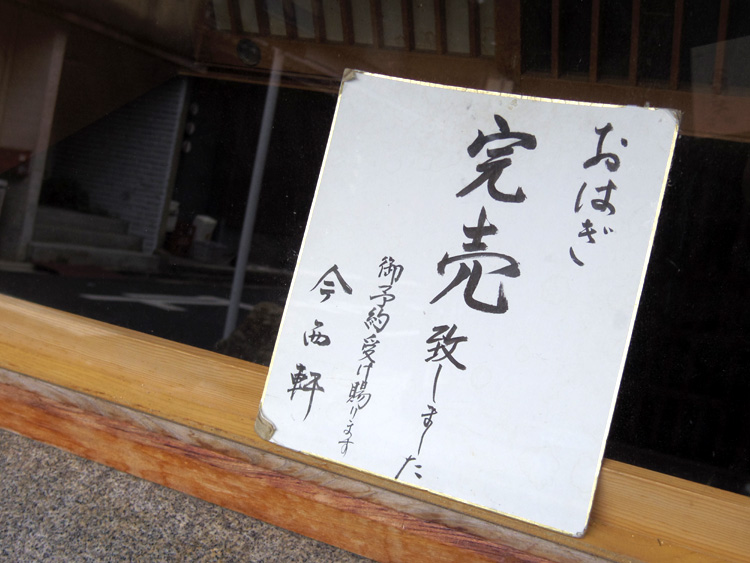 おはぎ
完売致しました
御予約受け賜ります
今西軒